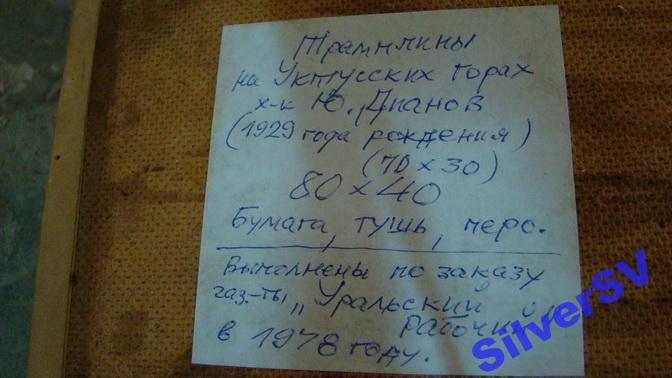 Трамплины
на Уктусских горах
х-к Ю. Дианов
(1929 года рождения)
(70 х 30)
80 х 40
Бумага, тушь, перо.
Выполнены по заказу
газ-ты „Уральский
рабочий"
в 1978 году.
SilverSV